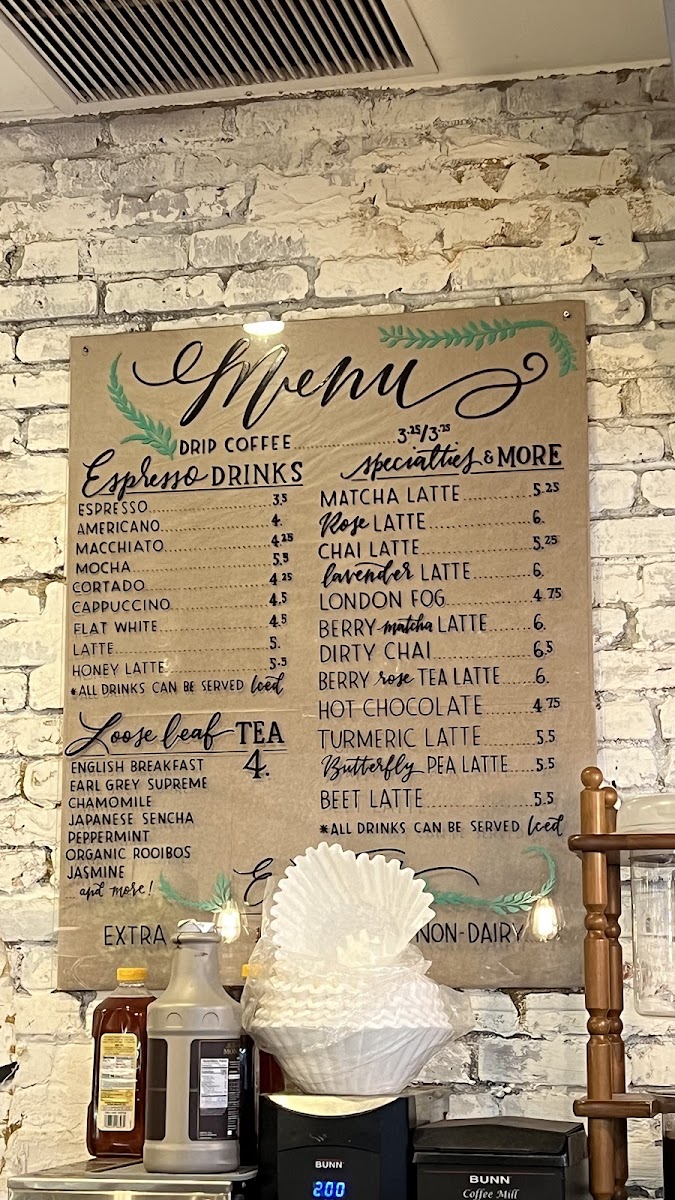 Menu
DRIP COFFEE 3.25/3.75
Espresso DRINKS
ESPRESSO 3.5
AMERICANO 4.
MACCHIATO 4.25
MOCHA 5.5
CORTADO 4.25
CAPPUCCINO 4.5
FLAT WHITE 4.5
LATTE 5.
HONEY LATTE 5.5
*ALL DRINKS CAN BE SERVED Iced
Loose leaf TEA
4.
ENGLISH BREAKFAST
EARL GREY SUPREME
CHAMOMILE
JAPANESE SENCHA
PEPPERMINT
ORGANIC ROOIBOS
JASMINE
and more!
specialties & MORE
MATCHA LATTE 5.25
Rose LATTE 6.
CHAI LATTE 5.25
lavender LATTE 6.
LONDON FOG 4.75
BERRY matcha LATTE 6.
DIRTY CHAI 6.5
BERRY rose TEA LATTE 6.
HOT CHOCOLATE 4.75
TURMERIC LATTE 5.5
Butterfly PEA LATTE 5.5
BEET LATTE 5.5
*ALL DRINKS CAN BE SERVED Iced
EXTRA
NON-DAIRY
BUNN
200
BUNN
Coffee Mill